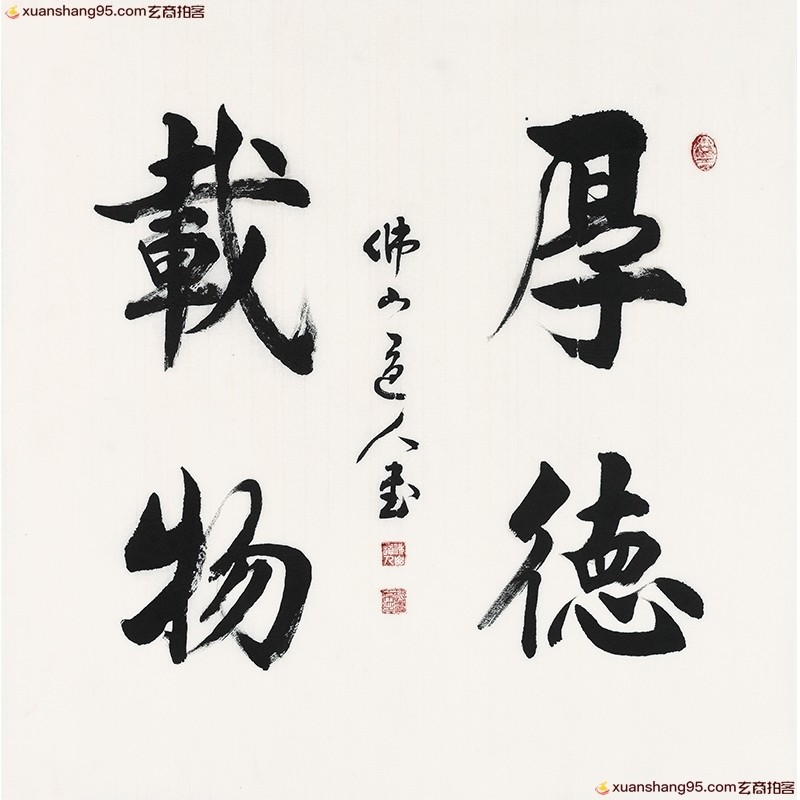 xuanshang95.com玄商拍客
厚德
載物
佛山道人書
xuanshang95.com玄商拍客